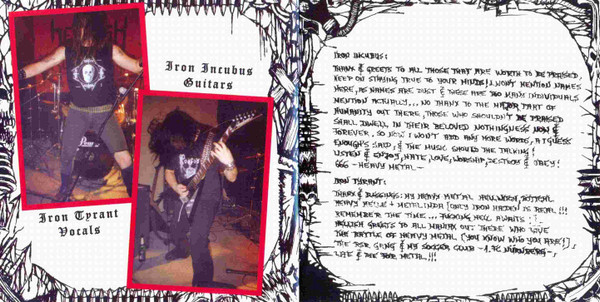 Iron Incubus
Guitars
Iron Tyrant
Vocals
IRON INCUBUS:
THANX & GREETS TO ALL THOSE THAT ARE WORTH TO BE PRAISED.
KEEP ON STAYING TRUE TO YOUR MINDS! I WON'T MENTION NAMES
HERE, AS NAMES ARE DUST & THERE ARE TOO MANY INDIVIDUALS
MENTION ACTUALLY... NO THANX TO THE MAJOR PART OF
HUMANITY OUT THERE, THOSE WHO SHOULDN'T BE PRAISED
SHALL DWELL IN THEIR BELOVED NOTHINGNESS NOW &
FOREVER. SO NOW I WON'T ADD ANY MORE WORDS, I GUESS
ENOUGH'S SAID, & THE MUSIC SHOULD DO THE TALKING!
LISTEN & ENJOY, HATE, LOVE, WORSHIP, DESTROY & OBEY!
666 - HEAVY METAL -
IRON TYRANT:
THANX & MY HEAVY METAL
HEAVY METAL & METAL (ONLY IRON MAIDEN IS REAL!!!
REMEMBER THE TIME... FUCKING HELL AWAITS
HELLISH GREETS TO ALL MANIAX OUT THERE WHO LOVE
THE BATTLE OF HEAVY METAL (YOU KNOW WHO YOU ARE!)
DIE FOR GANG & MY SOCCER CLUB - 1. FC NÜRNBERG -
LIVE & DIE FOR METAL!!!